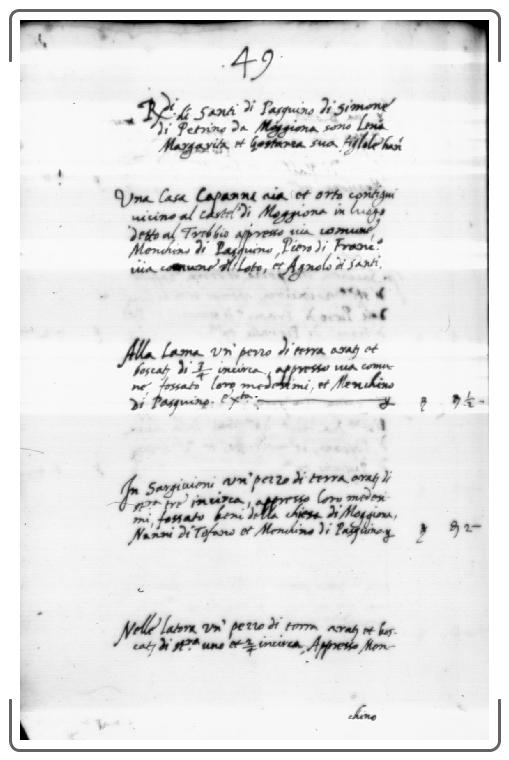 49
Rdi di Santi di Pasquino di Simone
di Petrino da Moggiona sono Lena
Margarita et Gostanza sua figliole han
Una Casa Capanna aia et orto contigui
vicino al Castel di Moggiona in luogo
detto al Trebbio appresso via comune,
Menchino di Pasquino, Piero di Franc.o
via comune di Loto, et Agnolo di Santi.
Alla Lama un' pezzo di terra arat; et
boscat; di 3/4 incirca, appresso via comu-
ne fossato loro medesimi, et Menchino
di Pasquino
1/2
In un' pezzo di terra arat; di
tre incirca, appresso loro medesi-
mi, fossato beni della chiesa di Moggiona,
Nanni di Tofano et Menchino di Pasquino
2
Nelle Latora un' pezzo di terra arat; et bos-
cat; di st.ra uno et incirca, Appresso Men-
chino